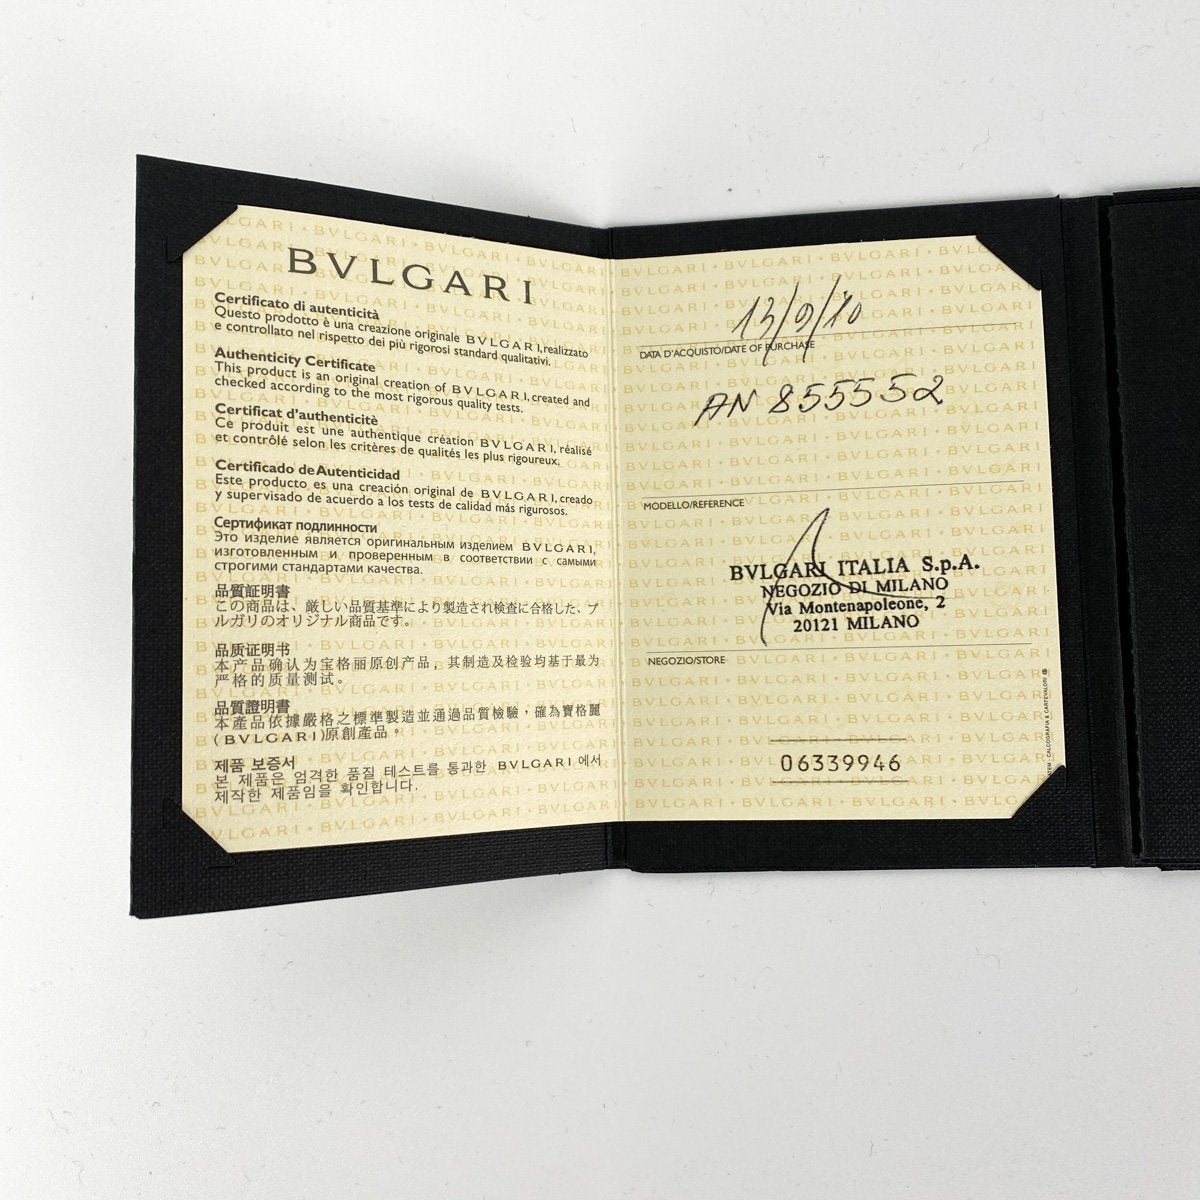 BVLGARI
Certificato di autenticità
Questo prodotto è una creazione originale BVLGARI, realizzato
e controllato nel rispetto dei più rigorosi standard qualitativi.
Authenticity Certificate
This product is an original creation of BVLGARI, created and
checked according to the most rigorous quality tests.
Certificat d'authenticitè
Ce produit est une authentique création BVLGARI, réalisé
et contrôlé selon les critères de qualités les plus rigoureux.
Certificado de Autenticidad
Este producto es una creación original de BVLGARI, creado
y supervisado de acuerdo a los tests de calidad más rigurosos.
Сертификат подлинности
Это изделие является оригинальным изделием BVLGARI,
изготовленным и проверенным в соответствии с самыми
строгими стандартами качества.
品質証明書
この商品は、厳しい品質基準により製造され検査に合格した、ブ
ルガリのオリジナル商品です。
品质证明书
本产品确认为宝格丽原创产品，其制造及检验均基于最为
严格的质量测试。
品質證明書
本產品依據嚴格之標準製造並通過品質檢驗，確為寶格麗
(BVLGARI)原創產品。
제품 보증서
본 제품은 엄격한 품질 테스트를 통과한 BVLGARI 에서
제작한 제품임을 확인합니다.
13/9/10
DATA D'ACQUISTO/DATE OF PURCHASE
AN 855552
MODELLO/REFERENCE
BVLGARI ITALIA S.p.A.
NEGOZIO DI MILANO
Via Montenapoleone, 2
20121 MILANO
NEGOZIO/STORE
06339946